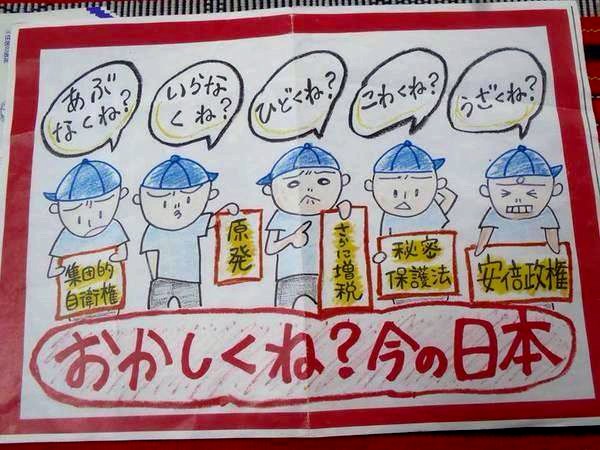 あぶ
なくね?
いらな
くね?
ひどくね?
こわくね?
うざくね?
集団的
自衛権
原発
さらに増税
秘密
保護法
安倍政権
おかしくね?今の日本